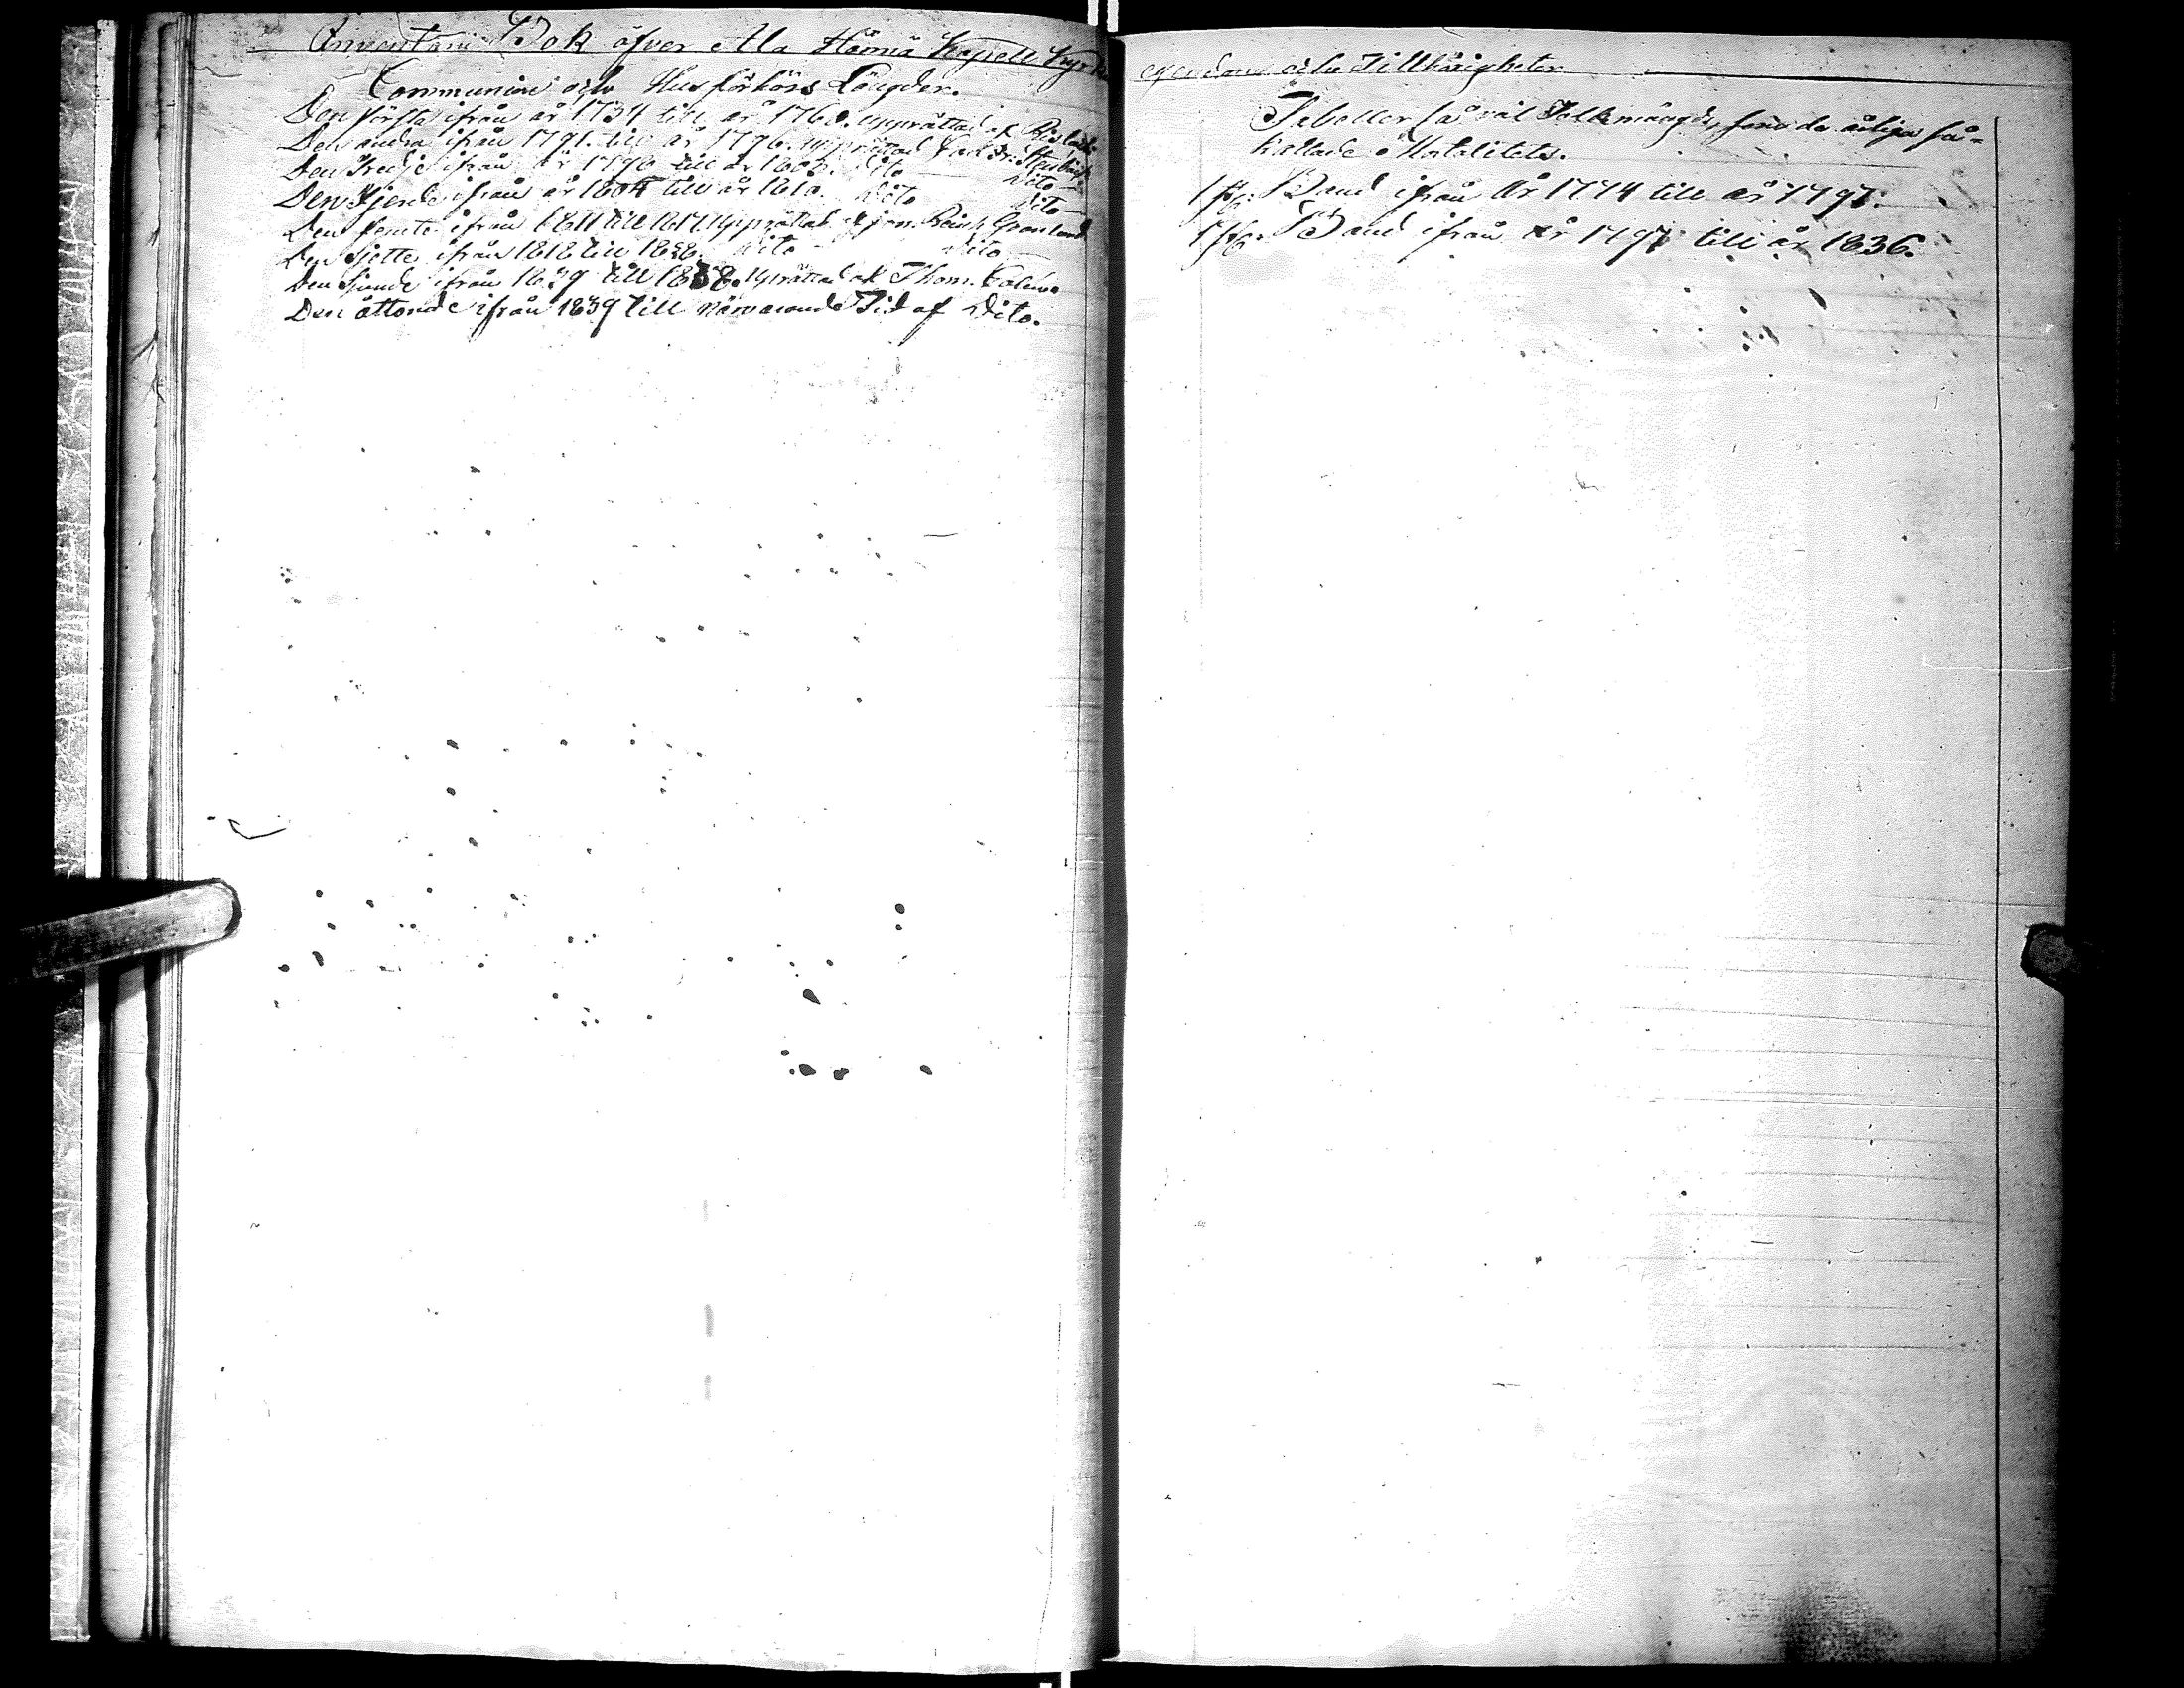 Inventarie Bok öfver Ala Hämiä Kapell Kyrko
Communion och Husförhörs Längder.
Den första ifrån år 1734 till år 1760. upprättad af
Den andra ifrån 1791. till år 1796. upprättad
Den Tredje ifrån år 1796 till år 1803. Dito Dito
Den Fjerde ifrån år 1804 till år 1810. Dito Dito
Den femte ifrån 1811 till 1817. Upprättad af Granlund
Den Sjette ifrån 1818 till 1828. Dito Dito
Den Sjunde ifrån 1829 till 1838. Uprättad af Thom.
Den åttonde ifrån 1839 till närvarande Tid af Dito.
egendom och Tillhörigheter
Tabeller så väl Folkmängds, som de årliga så-
kallade Mortalitets.
1 st. Band ifrån År 1774 till år 1797.
1 st. Band ifrån År 1797 till år 1836.